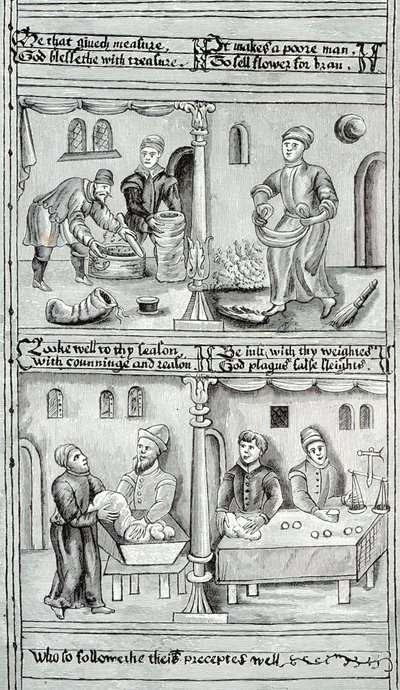 He that giueth measure,
God blessethe with treasure.
It makes a poore man.
To sell flower for bran.
Looke well to thy season,
with counninge and reason.
Be iust, with thy weightes
God plagus false sleights.
Who so followethe theis preceptes well,